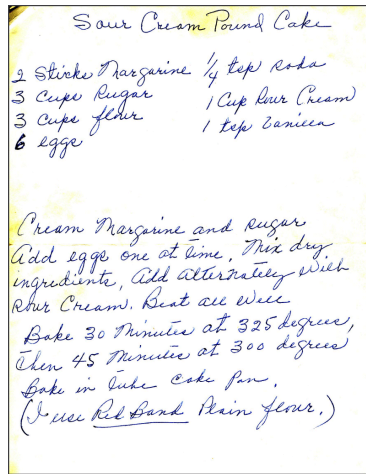 Sour Cream Pound Cake
2 Sticks Margarine 1/4 tsp soda
3 Cups Sugar 1 Cup Sour Cream
3 Cups flour 1 tsp Vanilla
6 eggs
Cream Margarine and sugar
Add eggs one at time, Mix dry
ingredients, Add Alternately with
Sour Cream. Beat all well
Bake 30 Minutes at 325 degrees,
Then 45 Minutes at 300 degrees
Bake in tube cake Pan.
(I use Red Band Plain flour.)